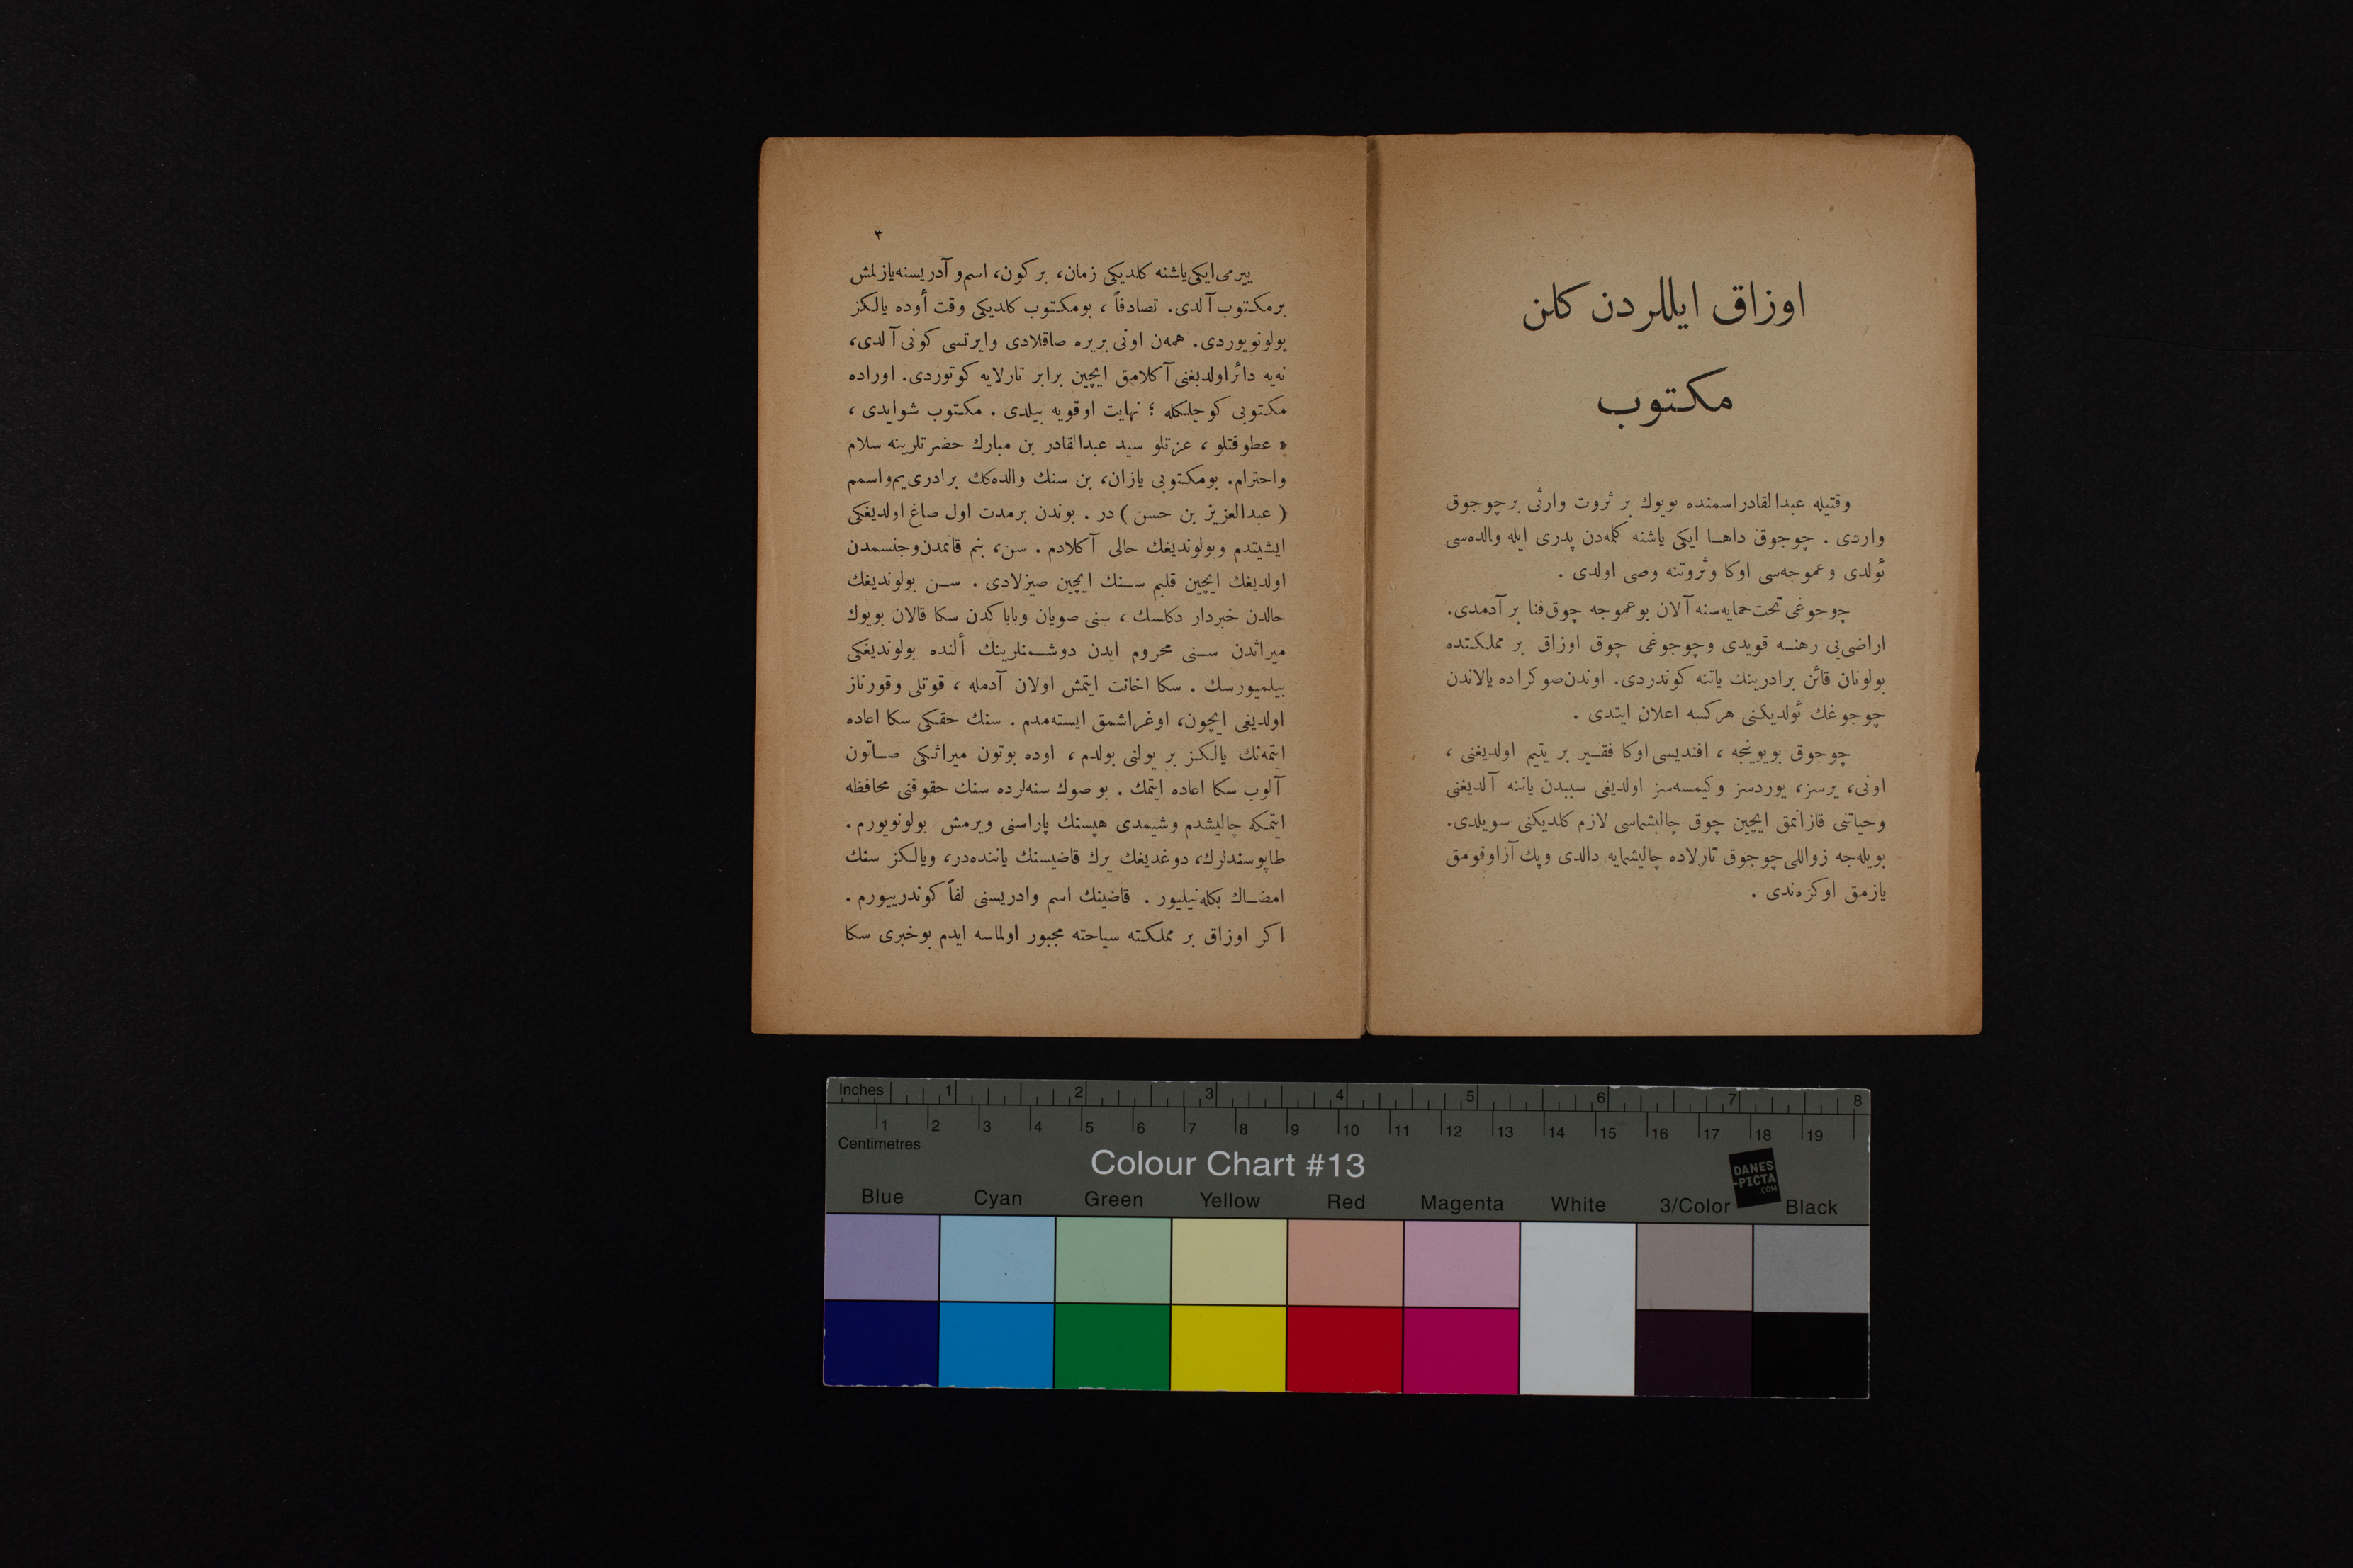 اوزاق ایللردن کلن
مکتوب
وقتیله عبدالقادر اسمنده بویوك بر ثروت وارثی بر چوجوق
واردی . چوجوق داهـا ایکی یاشنه کلمه‌دن پدری ایله والده‌سی
ئولدی وعموجه‌سی اوکا وثروتنه وصی اولدی .
چوجوغی تحت حمایه‌سنه آلان بو عموجه چوق فنا بر آدمدی.
اراضی‌یی رهنـه قویدی وچوجوغی چوق اوزاق بر مملکتده
بولونان قائن برادرینك یاتنه کوندردی. اوندن صوکراده یالاندن
چوجوغك ئولدیکنی هرکسه اعلان ایتدی .
چوجوق بویونجه ، افندیسی اوکا فقـیر بر یتیم اولدیغنی ،
اونی، یرسز، یوردسز وکیمسه‌سز اولدیغی سببدن یاننه آلدیغنی
وحیاتنی قازانمق ایچین چوق چالیشماسی لازم کلدیکنی سویلدی.
بویله‌جه زواللی چوجوق تارلاده چالیشمایه دالدی وپك آز اوقومق
یازمق اوکره‌ندی .
٣
ییرمی ایکی یاشنه کلدیکی زمان، بر کون، اسم و آدریسنه یازلمش
بر مکتوب آلدی. تصادفاً ، بومکتوب کلدیکی وقت أوده یالکز
بولونویوردی. همه‌ن اونی بریره صاقلادی وایرتسی کونی آلدی،
نه‌یه دائر اولدیغنی آکلامق ایچین برابر تارلایه کوتوردی. اوراده
مکتوبی کوچلکله ؛ نهایت اوقویه بیلدی . مکتوب شوایدی ،
« عطوفتلو ، عزتلو سید عبدالقادر بن مبارك حضرتلرینه سلام
واحترام. بومکتوبی یازان، بن سنك والده‌كك برادری‌یم واسمم
( عبدالعزیز بن حسن ) در . بوندن برمدت اول صاغ اولدیغکی
ایشیتدم وبولوندیغك حالی آکلادم . سن، بنم قانمدن وجنسمدن
اولدیغك ایچین قلبم سـنك ایچین صیزلادی . سـن بولوندیغك
حالدن خبردار دکلسك ، سنی صویان وباباکدن سکا قالان بویوك
میراثدن سـنی محروم ایدن دوشـمنلرینك ألنده بولوندیغکی
بیلمیورسك . سکا اخانت ایتمش اولان آدمله ، قوتلی وقورناز
اولدیغی ایچون، اوغراشمق ایسته‌مدم . سنك حقکی سکا اعاده
ایتمه‌نك یالکز بر یولنی بولدم ، اوده بوتون میراثکی صـاتون
آلوب سکا اعاده ایتمك . بو صوك سنه‌لرده سنك حقوقنی محافظه
ایتمکه چالیشدم وشیمدی هپسنك پاراسنی ویرمش بولونویورم .
طاپوسندلرك، دوغدیغك یرك قاضیسنك یاننده‌در، ویالکز سنك
امضـاك بکله‌نیلیور . قاضینك اسم وادریسنی لفاً کوندرییورم .
اکر اوزاق بر مملکته سیاحته مجبور اولماسه ایدم بوخبری سکا
Inches 1 2 3 4 5 6 7 8
1 2 3 4 5 6 7 8 9 10 11 12 13 14 15 16 17 18 19
Centimetres
Colour Chart #13
DANES
-PICTA
.COM
Blue Cyan Green Yellow Red Magenta White 3/Color Black